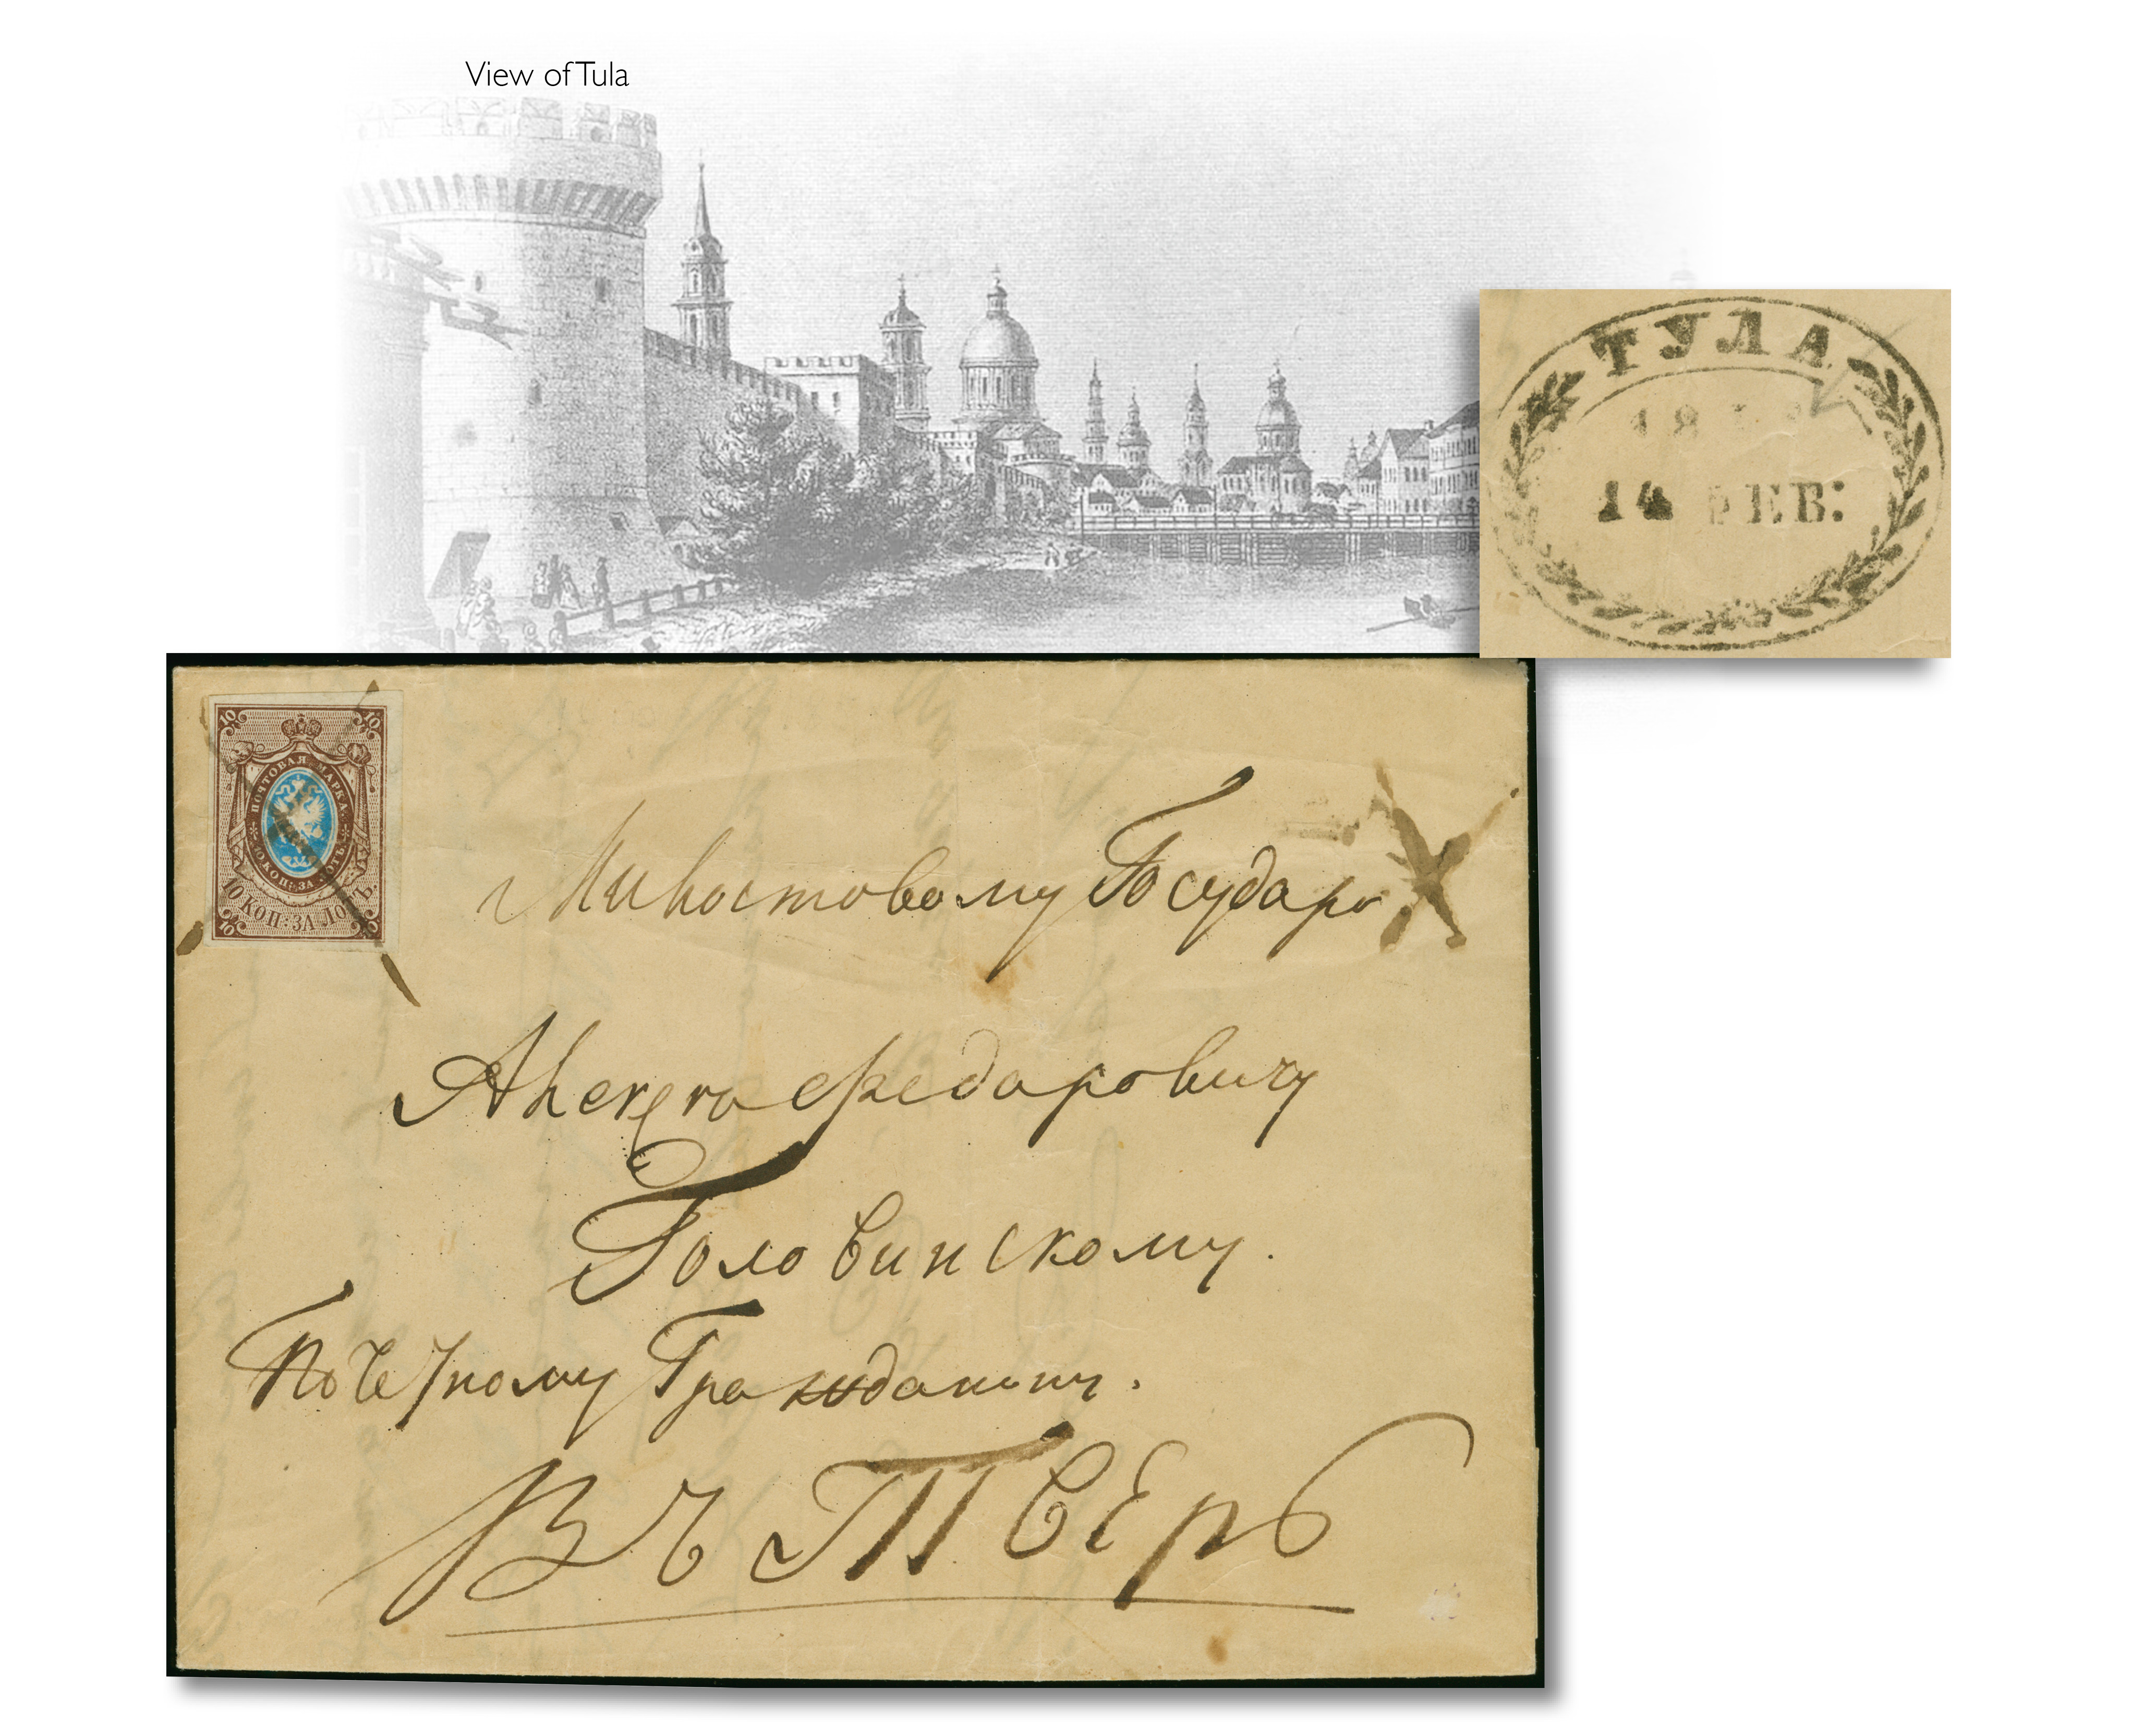 View of Tula
ТУЛА
14 ФЕВ:
10 10
ПОЧТОВАЯ МАРКА
10 КОП: ЗА ЛОТЪ
10 КОП·ЗА ЛОТЪ.
10 10
Милостовому Государю
Алексею Федоровичу
Головинскому.
Почетному Гражданину.
Въ Тверь